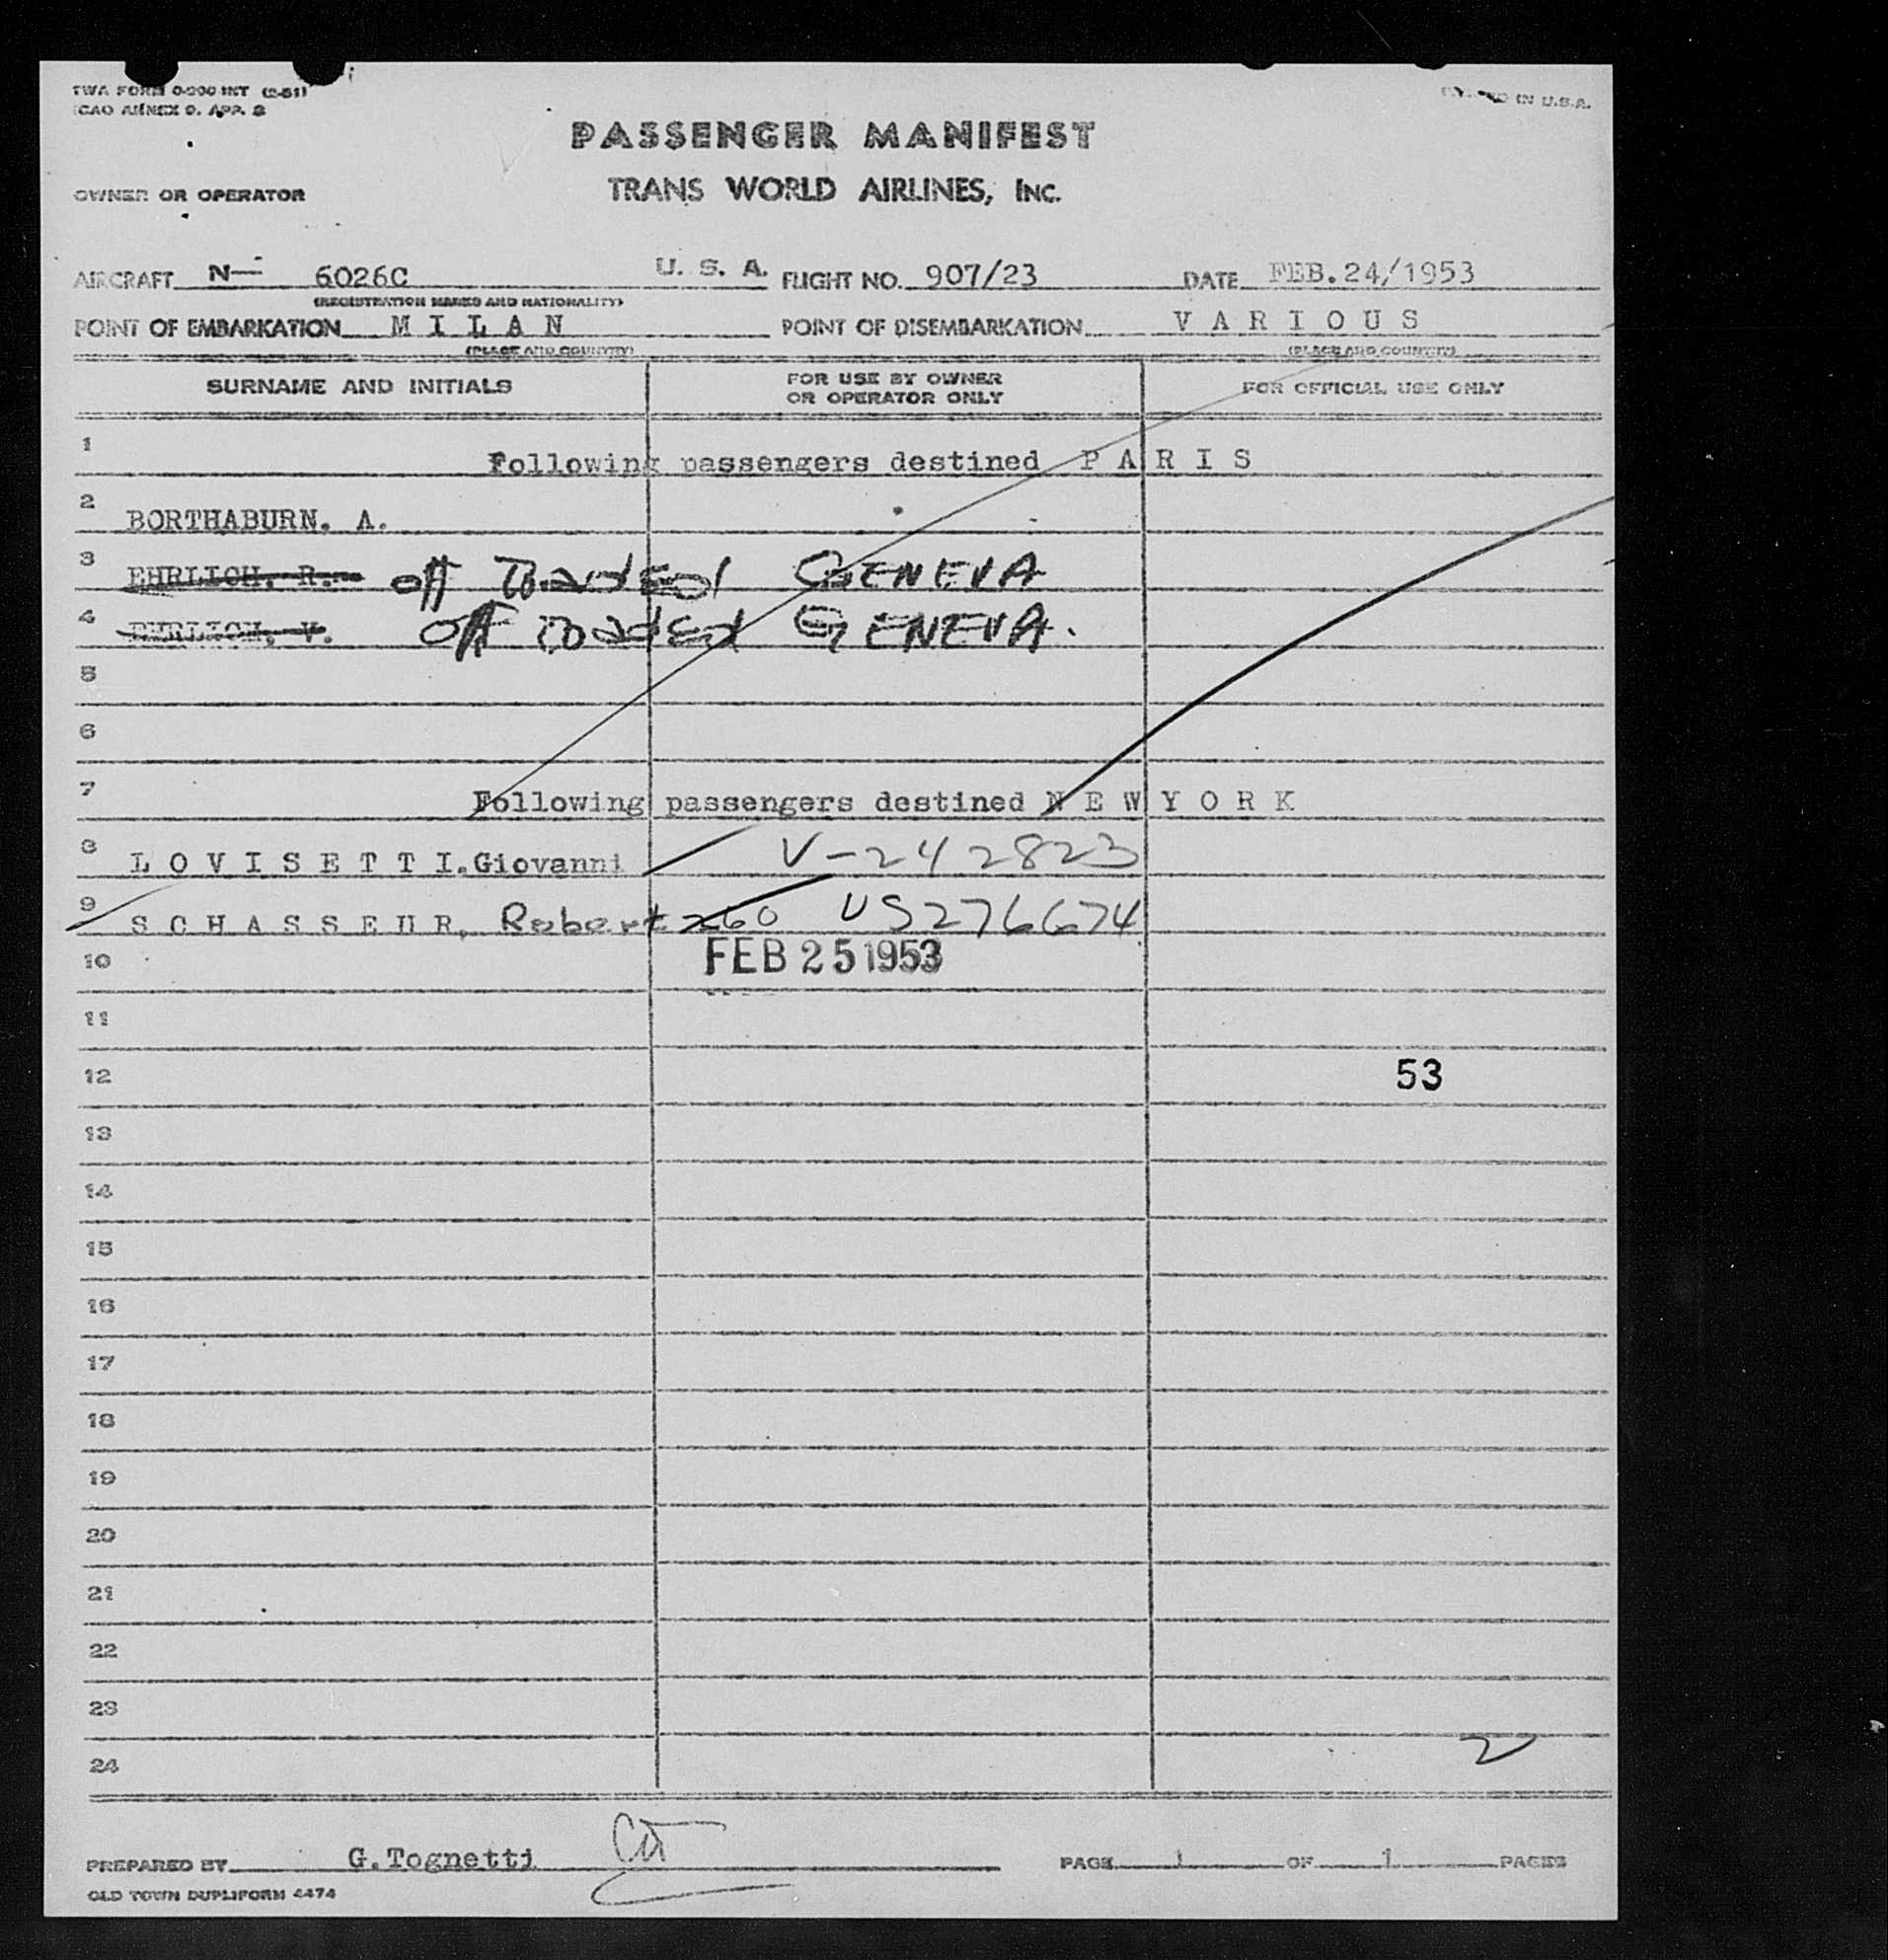 TWA FORM 0-200 INT (2-51)
ICAO ANNEX 9. APP. 2
IN U.S.A.
PASSENGER MANIFEST
OWNER OR OPERATOR TRANS WORLD AIRLINES, INC.
AIRCRAFT N— 6026C U. S. A. FLIGHT NO. 907/23 DATE FEB.24/1953
(REGISTRATION MARKS AND NATIONALITY)
POINT OF EMBARKATION M I L A N POINT OF DISEMBARKATION V A R I O U S
(PLACE AND COUNTRY) (PLACE AND COUNTRY)
SURNAME AND INITIALS FOR USE BY OWNER OR OPERATOR ONLY FOR OFFICIAL USE ONLY
1 Following passengers destined P A R I S
2 BORTHABURN. A.
3 EHRLICH. R. off Loaded GENEVA
4 EHRLICH. V. off Loaded GENEVA.
5
6
7 Following passengers destined N E W Y O R K
8 L O V I S E T T I.Giovanni V-242823
9 S C H A S S E U R, Robert 260 US276674
10 FEB 25 1953
11
12 53
13
14
15
16
17
18
19
20
21
22
23
24 2
PREPARED BY G.Tognetti PAGE 1 OF 1 PAGES
OLD TOWN DUPLIFORM 4474